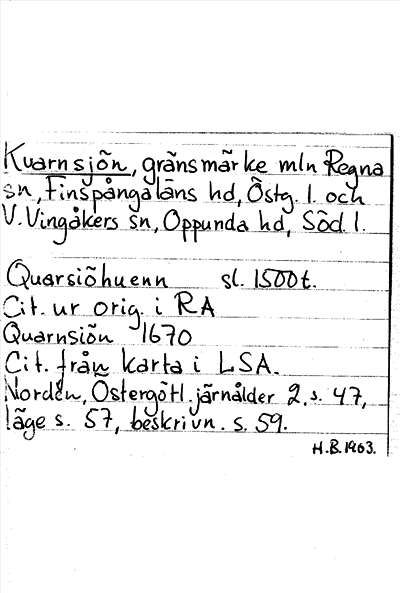 Kvarnsjön, gränsmärke mln Regna
sn, Finspångaläns hd, Östg. l. och
V. Vingåkers sn, Oppunda hd, Söd. l.
Quarsiöhuenn sl. 1500 t.
Cit. ur orig. i RA
Quarnsiön 1670
Cit. från karta i LSA.
Nordén, Östergötl. järnålder 2, s. 47,
läge s. 57, beskrivn. s. 59.
H.B. 1963.